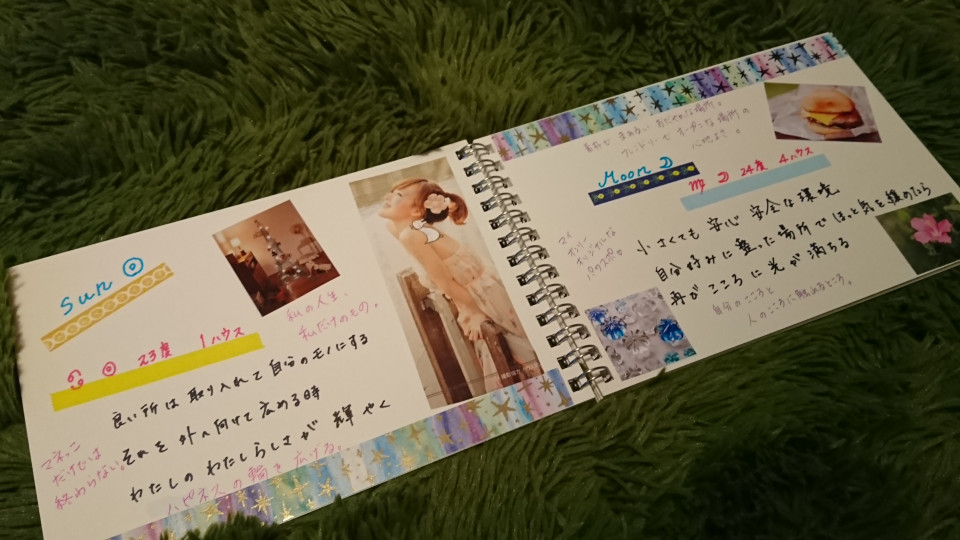 Sun ☉
♋ ☉ 23度 1ハウス
私の人生、
私だけのもの。
良い所は取り入れて自分のモノにする
それを外へ向けて広める時
わたしのわたしらしさが輝やく
マネっこ
だけでは
終わらない。
ハピネスの輪を広げる。
おだやかな場所。
フレンドリーでオープンな場所の
心地よさ。
Moon ☽
♍ ☽ 24度 4ハウス
小さくても 安心 安全な環境
自分好みに整った場所でほっと気を緩めたら
再びこころに光が満ちる
マイ
オンリー
オリジナルな
パワスポ。
自分のこころと
人のこころに触れるところ。